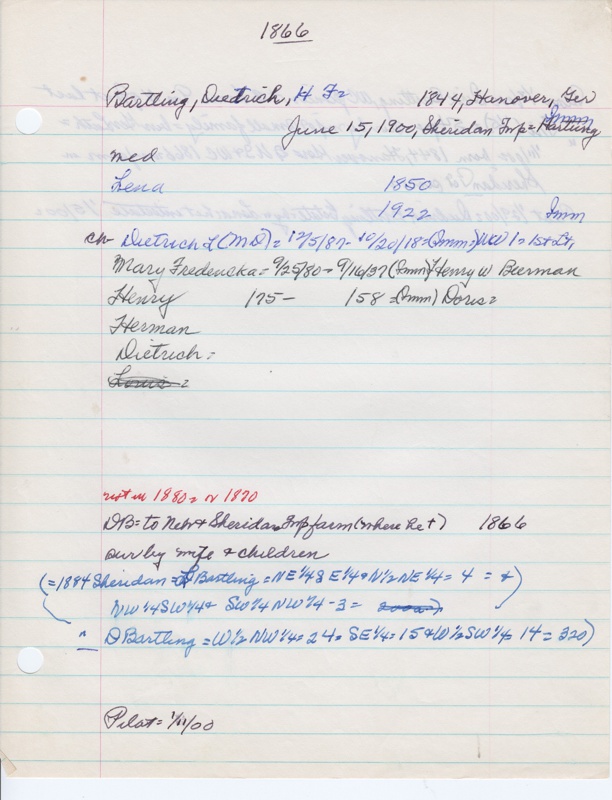 1866
Bartling, Diedrich, H Fz 1844, Hanover, Ger
June 15, 1900, Sheridan Twp = Hartung
Imm
med
Lena 1850
1922 Imm
ch- Dietrich L (MD) = 12/5/87 - 10/20/18 = (Imm=) WW 1 = 1st Lt,
Mary Fredericka = 9/25/80 = 9/16/37 (Imm) Henry W Bierman
Henry 175 - 158 = (Imm) Doris =
Herman
Dietrich =
Louis =
not in 1880 = or 1870
DB = to Nebr & Sheridan Twp farm (where he +) 1866
sur by wife & children
(= 1884 Sheridan = Bartling = NE 1/4 SE 1/4 & N 1/2 NE 1/4 = 4 = &
NW 1/4 SW 1/4 & SW 1/4 NW 1/4 - 3 =
" D Bartling = W 1/2 NW 1/4 = 24 = SE 1/4 = 15 & W 1/2 SW 1/4 = 14 = 320)
Pilot = 1/11/00